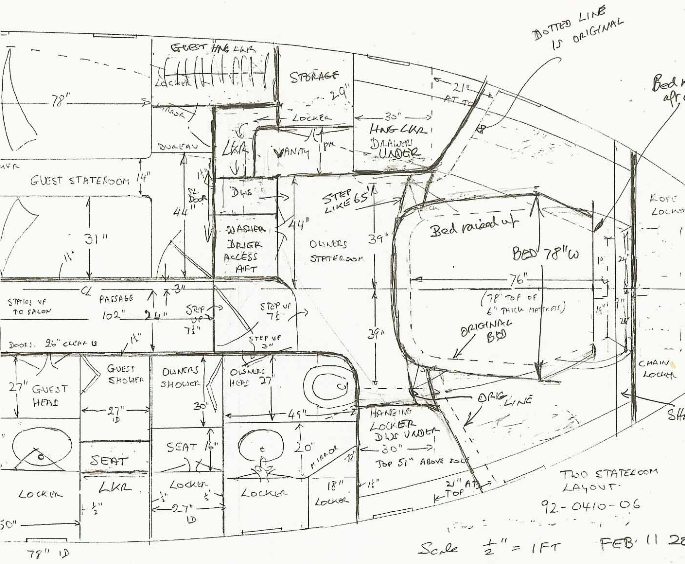 DOTTED LINE
IS ORIGINAL
GUEST HNG LKR
LOCKER
STORAGE
29"
21"
AT TOP
Bed
aft
78"
LOCKER
30"
HNG LKR
DRAWERS
UNDER
LKR
VANITY
BUREAU
GUEST STATEROOM
14"
DOOR
44"
DWS
STEP
LINE 65"
WASHER
DRIER
ACCESS
AFT
44"
OWNERS
STATEROOM
39"
Bed raised up
BED 78" W
31"
76"
(78" TOP OF
6" THICK MATTRESS)
ROPE
LOCKER
1½"
CL
3"
STAIRS UP
TO SALON
PASSAGE
102"
26"
STEP
UP
7½"
STEP UP
7½
39"
ORIGINAL
BED
DOORS 26" CLEAR
1½"
STEP UP
3"
27"
GUEST
HEAD
GUEST
SHOWER
OWNERS
SHOWER
OWNERS
HEAD
27"
CHAIN
LOCKER
27"
ID
30"
45"
ORIG LINE
HANGING
LOCKER
DWS UNDER
30"
TOP 51" ABOVE SOLE
SEAT
SEAT
16"
20"
MIRROR
LOCKER
LKR
LOCKER
LOCKER
18"
LOCKER
1½"
21" AT
TOP
½"
27"
ID
78" ID
TWO STATEROOM
LAYOUT
92-0410-06
Scale ½" = 1FT
FEB. 11